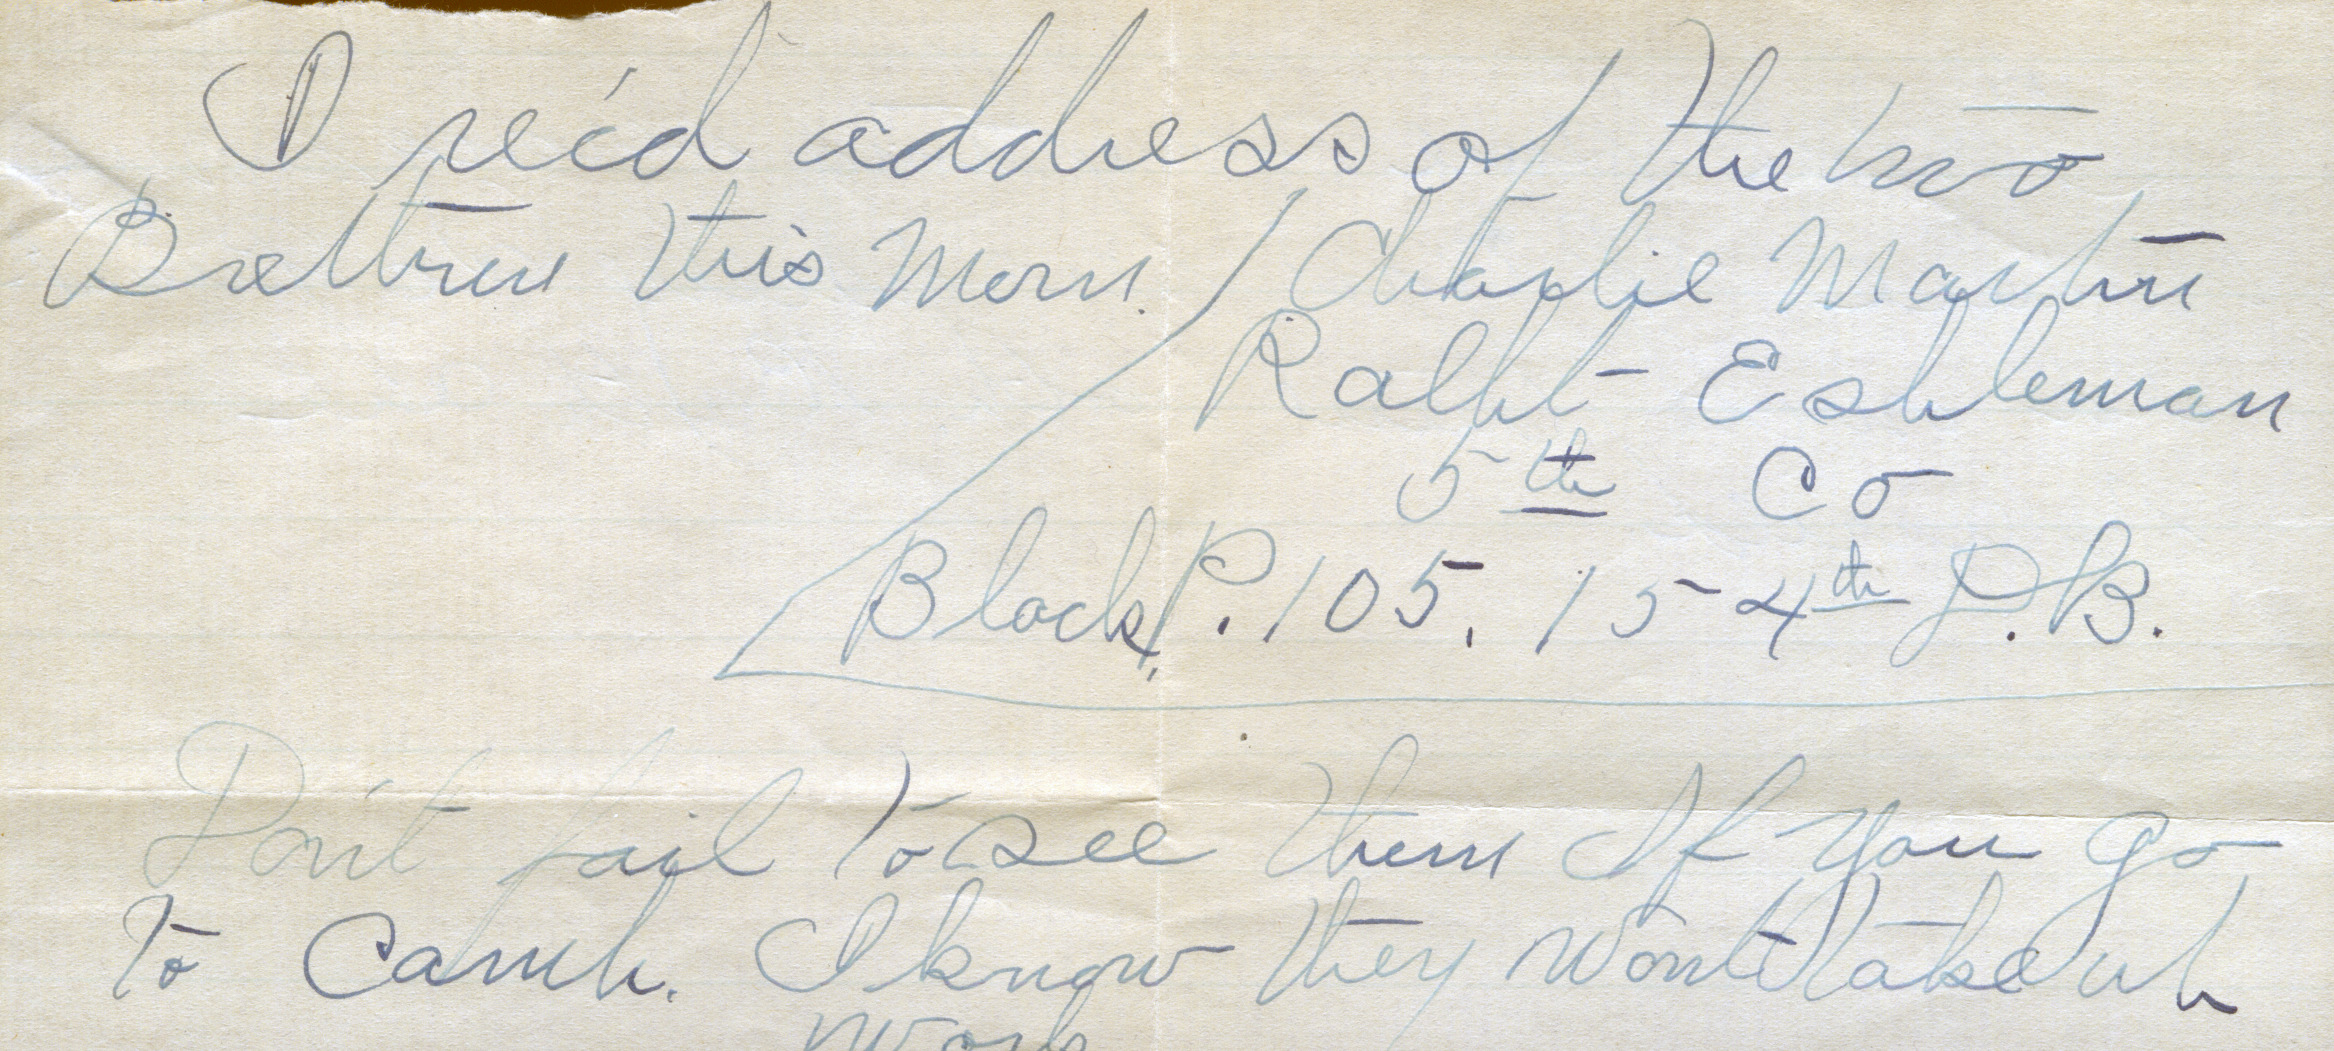 I rec'd address of the two
Brethren this Morn. Charlie Martin
Ralph Eshleman
5th Co
Block, P. 105, 154th D.B.
Don't fail to see them If you go
to Camp. I know they won't take up
work